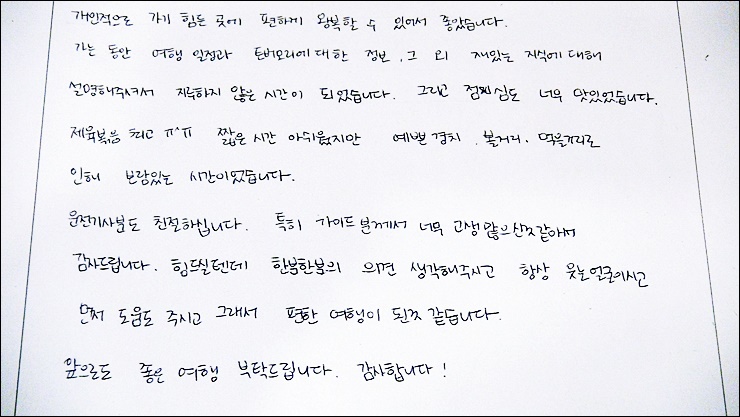 개인적으로 가기 힘든 곳에 편하게 왕복할 수 있어서 좋았습니다.
가는 동안 여행 일정과 토버모리에 대한 정보, 그 외 재밌는 지식에 대해
설명해주셔서 지루하지 않은 시간이 되었습니다. 그리고 점심식도 너무 맛있었습니다.
제육볶음 최고 ㅠ^ㅠ 짧은 시간 아쉬웠지만 예쁜 경치, 볼거리, 먹을거리로
인해 보람있는 시간이었습니다.
운전기사분도 친절하십니다. 특히 가이드 분께서 너무 고생 많으신것같아서
감사드립니다. 힘드실텐데 한분한분의 의견 생각해주시고 항상 웃는얼굴이시고
먼저 도움도 주시고 그래서 편한 여행이 된것 같습니다.
앞으로도 좋은 여행 부탁드립니다. 감사합니다!